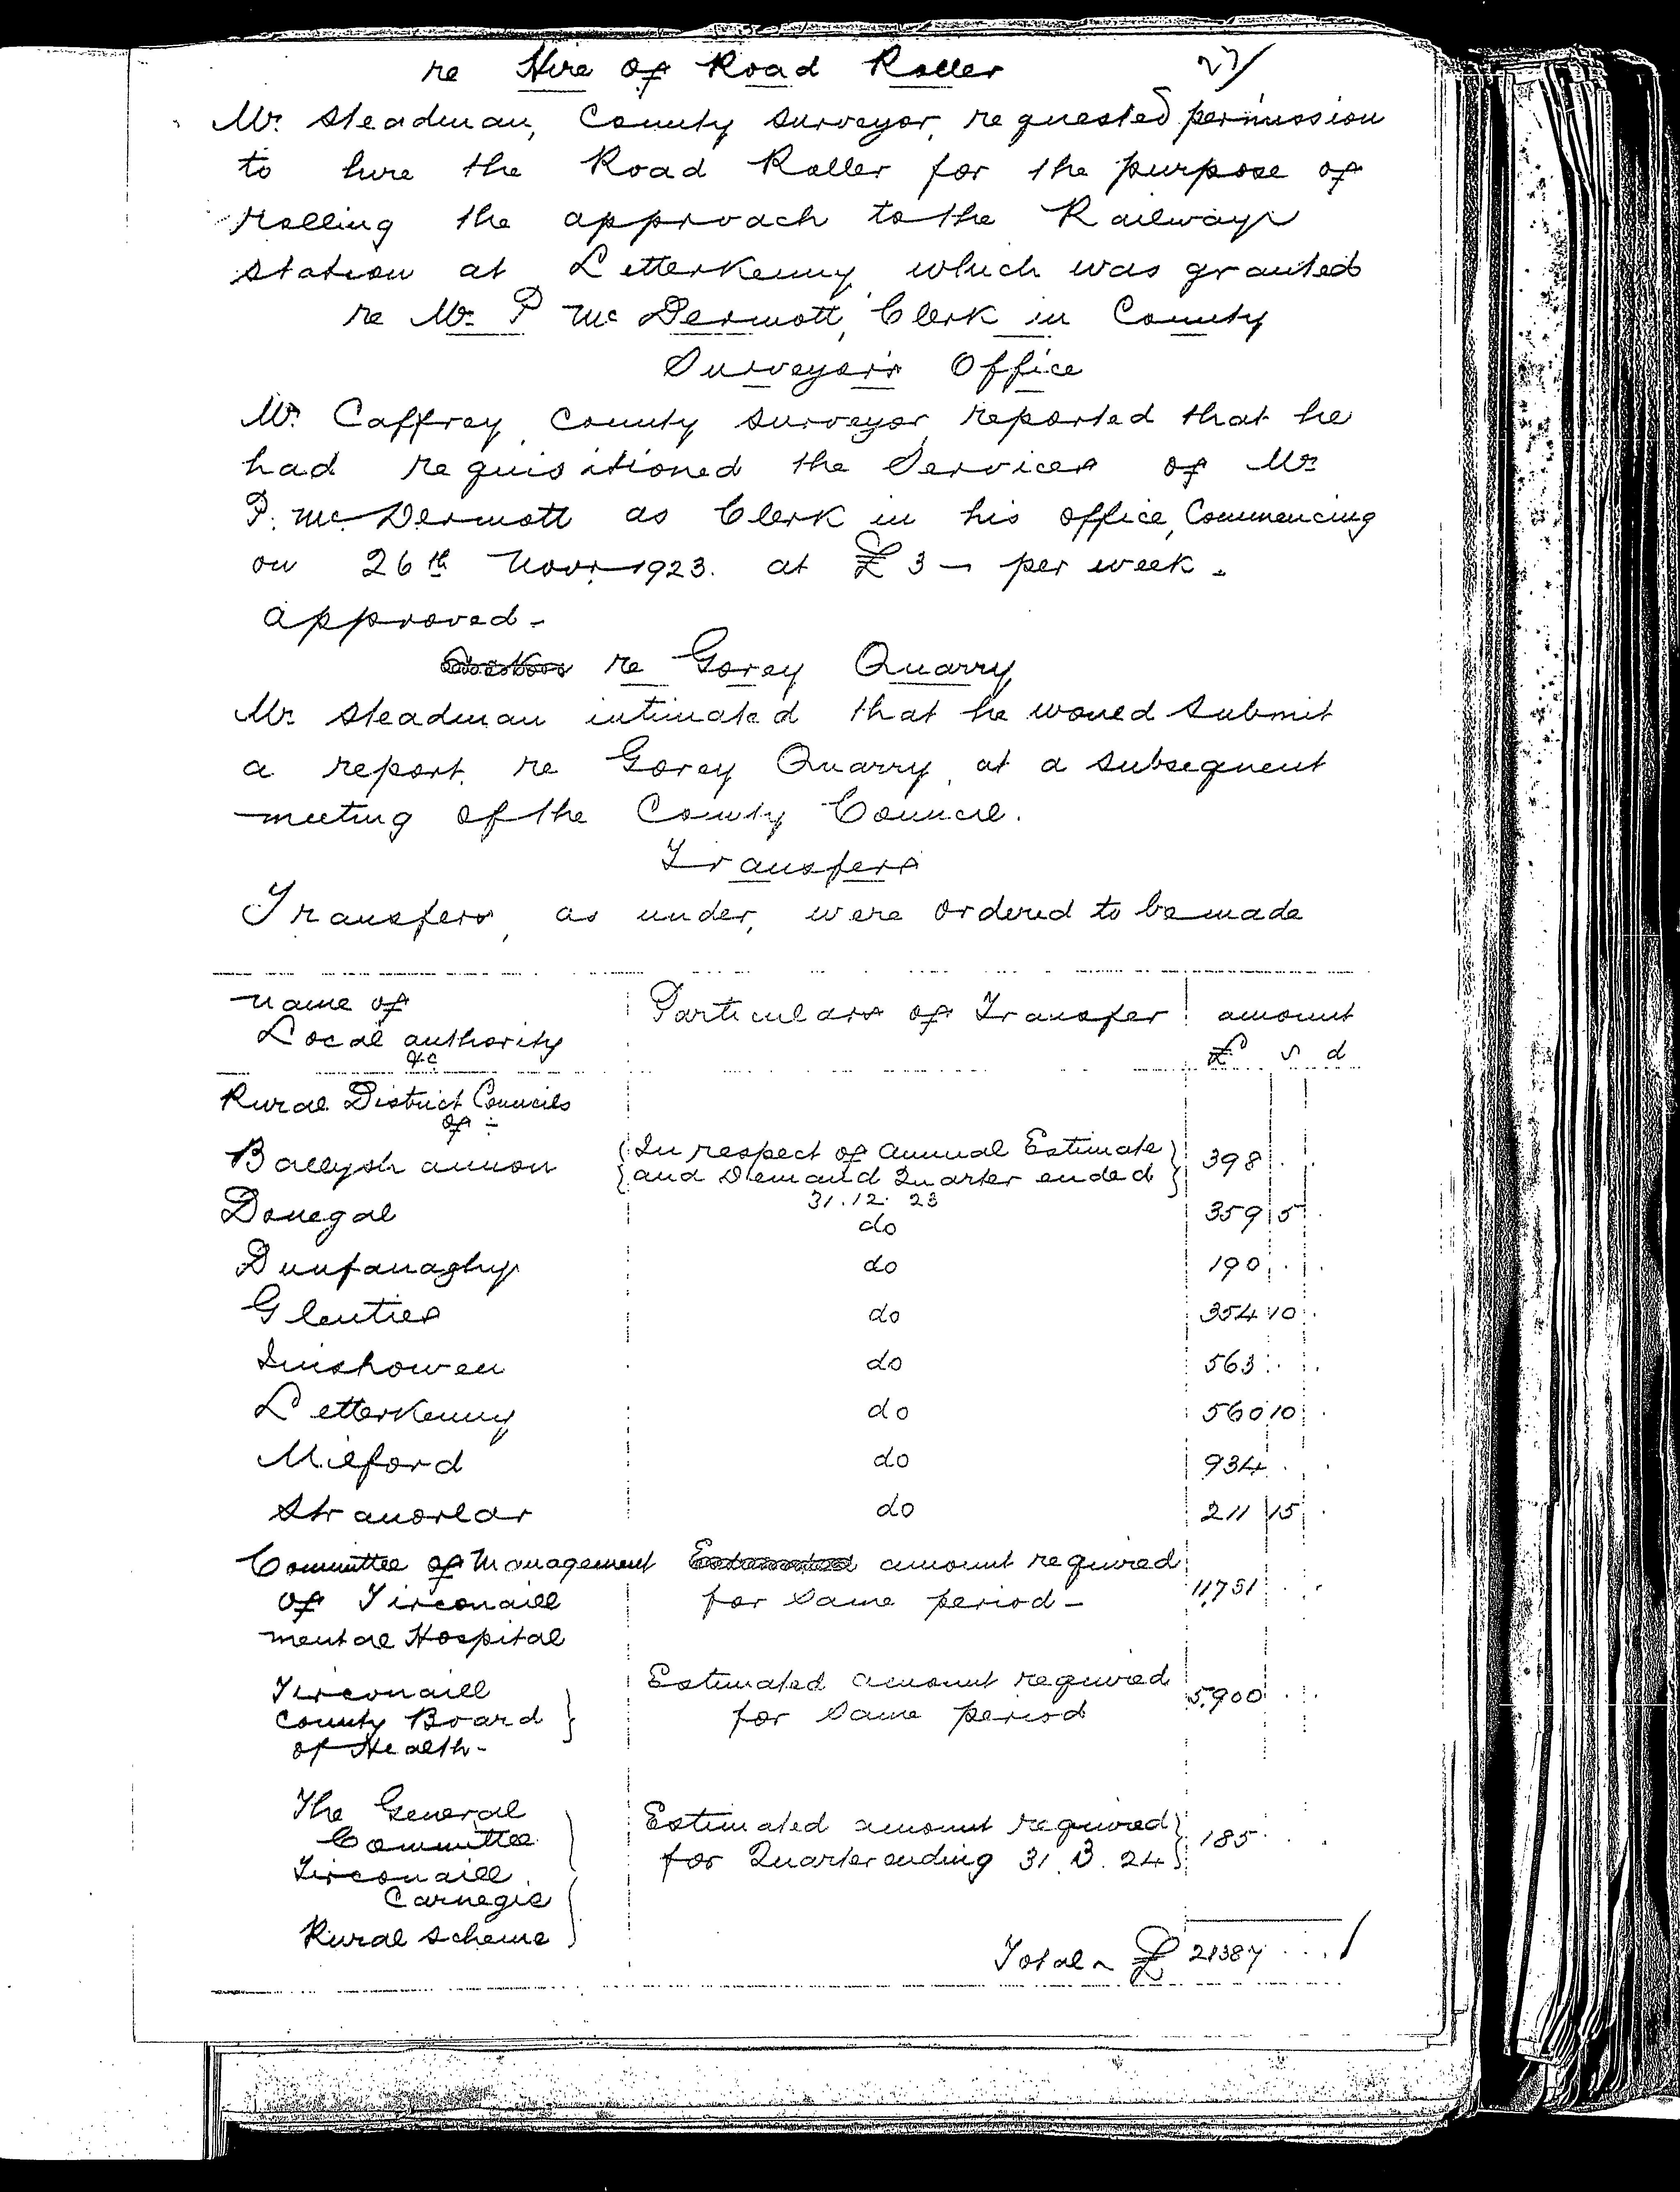 27/
re Hire of Road Roller
Mr. Steadman, County Surveyor, requested permission
to hire the Road Roller for the purpose of
rolling the approach to the Railway
Station at Letterkenny, which was granted
re Mr. P McDermott, Clerk in County
Surveyor's Office
Mr. Caffrey, County Surveyor, reported that he
had requisitioned the Services of Mr
P. McDermott as Clerk in his office, Commencing
on 26th Novr 1923. at £3 - per week.
approved.
re Gorey Quarry
Mr Steadman intimated that he would submit
a report re Gorey Quarry at a subsequent
meeting of the County Council.
Transfers
Transfers, as under, were ordered to be made
name of Particulars of Transfer amount
Local authority
&c £ s d
Rural District Councils
of :-
Ballyshannon { In respect of Annual Estimate } 398 . .
{ and Demand Quarter ended }
31.12.23
Donegal do 359 5 .
Dunfanaghy do 190 . .
Glenties do 354 10 .
Inishowen do 563 . .
Letterkenny do 560 10 .
Milford do 934 . .
Stranorlar do 211 15 .
Committee of Management amount required
of Tirconaill for same period - 11,731 . .
mental Hospital
Tirconaill Estimated amount required
County Board } for same period 5,900 . .
of Health -
The General Estimated amount required }
Committee for Quarter ending 31.3.24 } 185 . .
Tirconaill
Carnegie
Rural Scheme
Total ~ £ 21387 . .